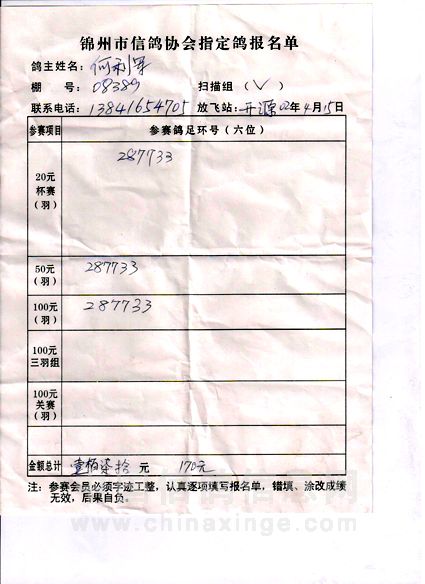 锦州市信鸽协会指定鸽报名单
鸽主姓名：何利军
棚 号：08389 扫描组（√）
联系电话：13841654705 放飞站：开源 02年4月15日
参赛项目 参赛鸽足环号（六位）
20元
杯赛
（羽）
287733
50元
（羽）
287733
100元
（羽）
287733
100元
三羽组
100元
关赛
（羽）
金额总计 壹佰柒拾 元 170元
注：参赛会员必须字迹工整，认真逐项填写报名单，错填、涂改成绩
无效，后果自负。
www.chinaxinge.com